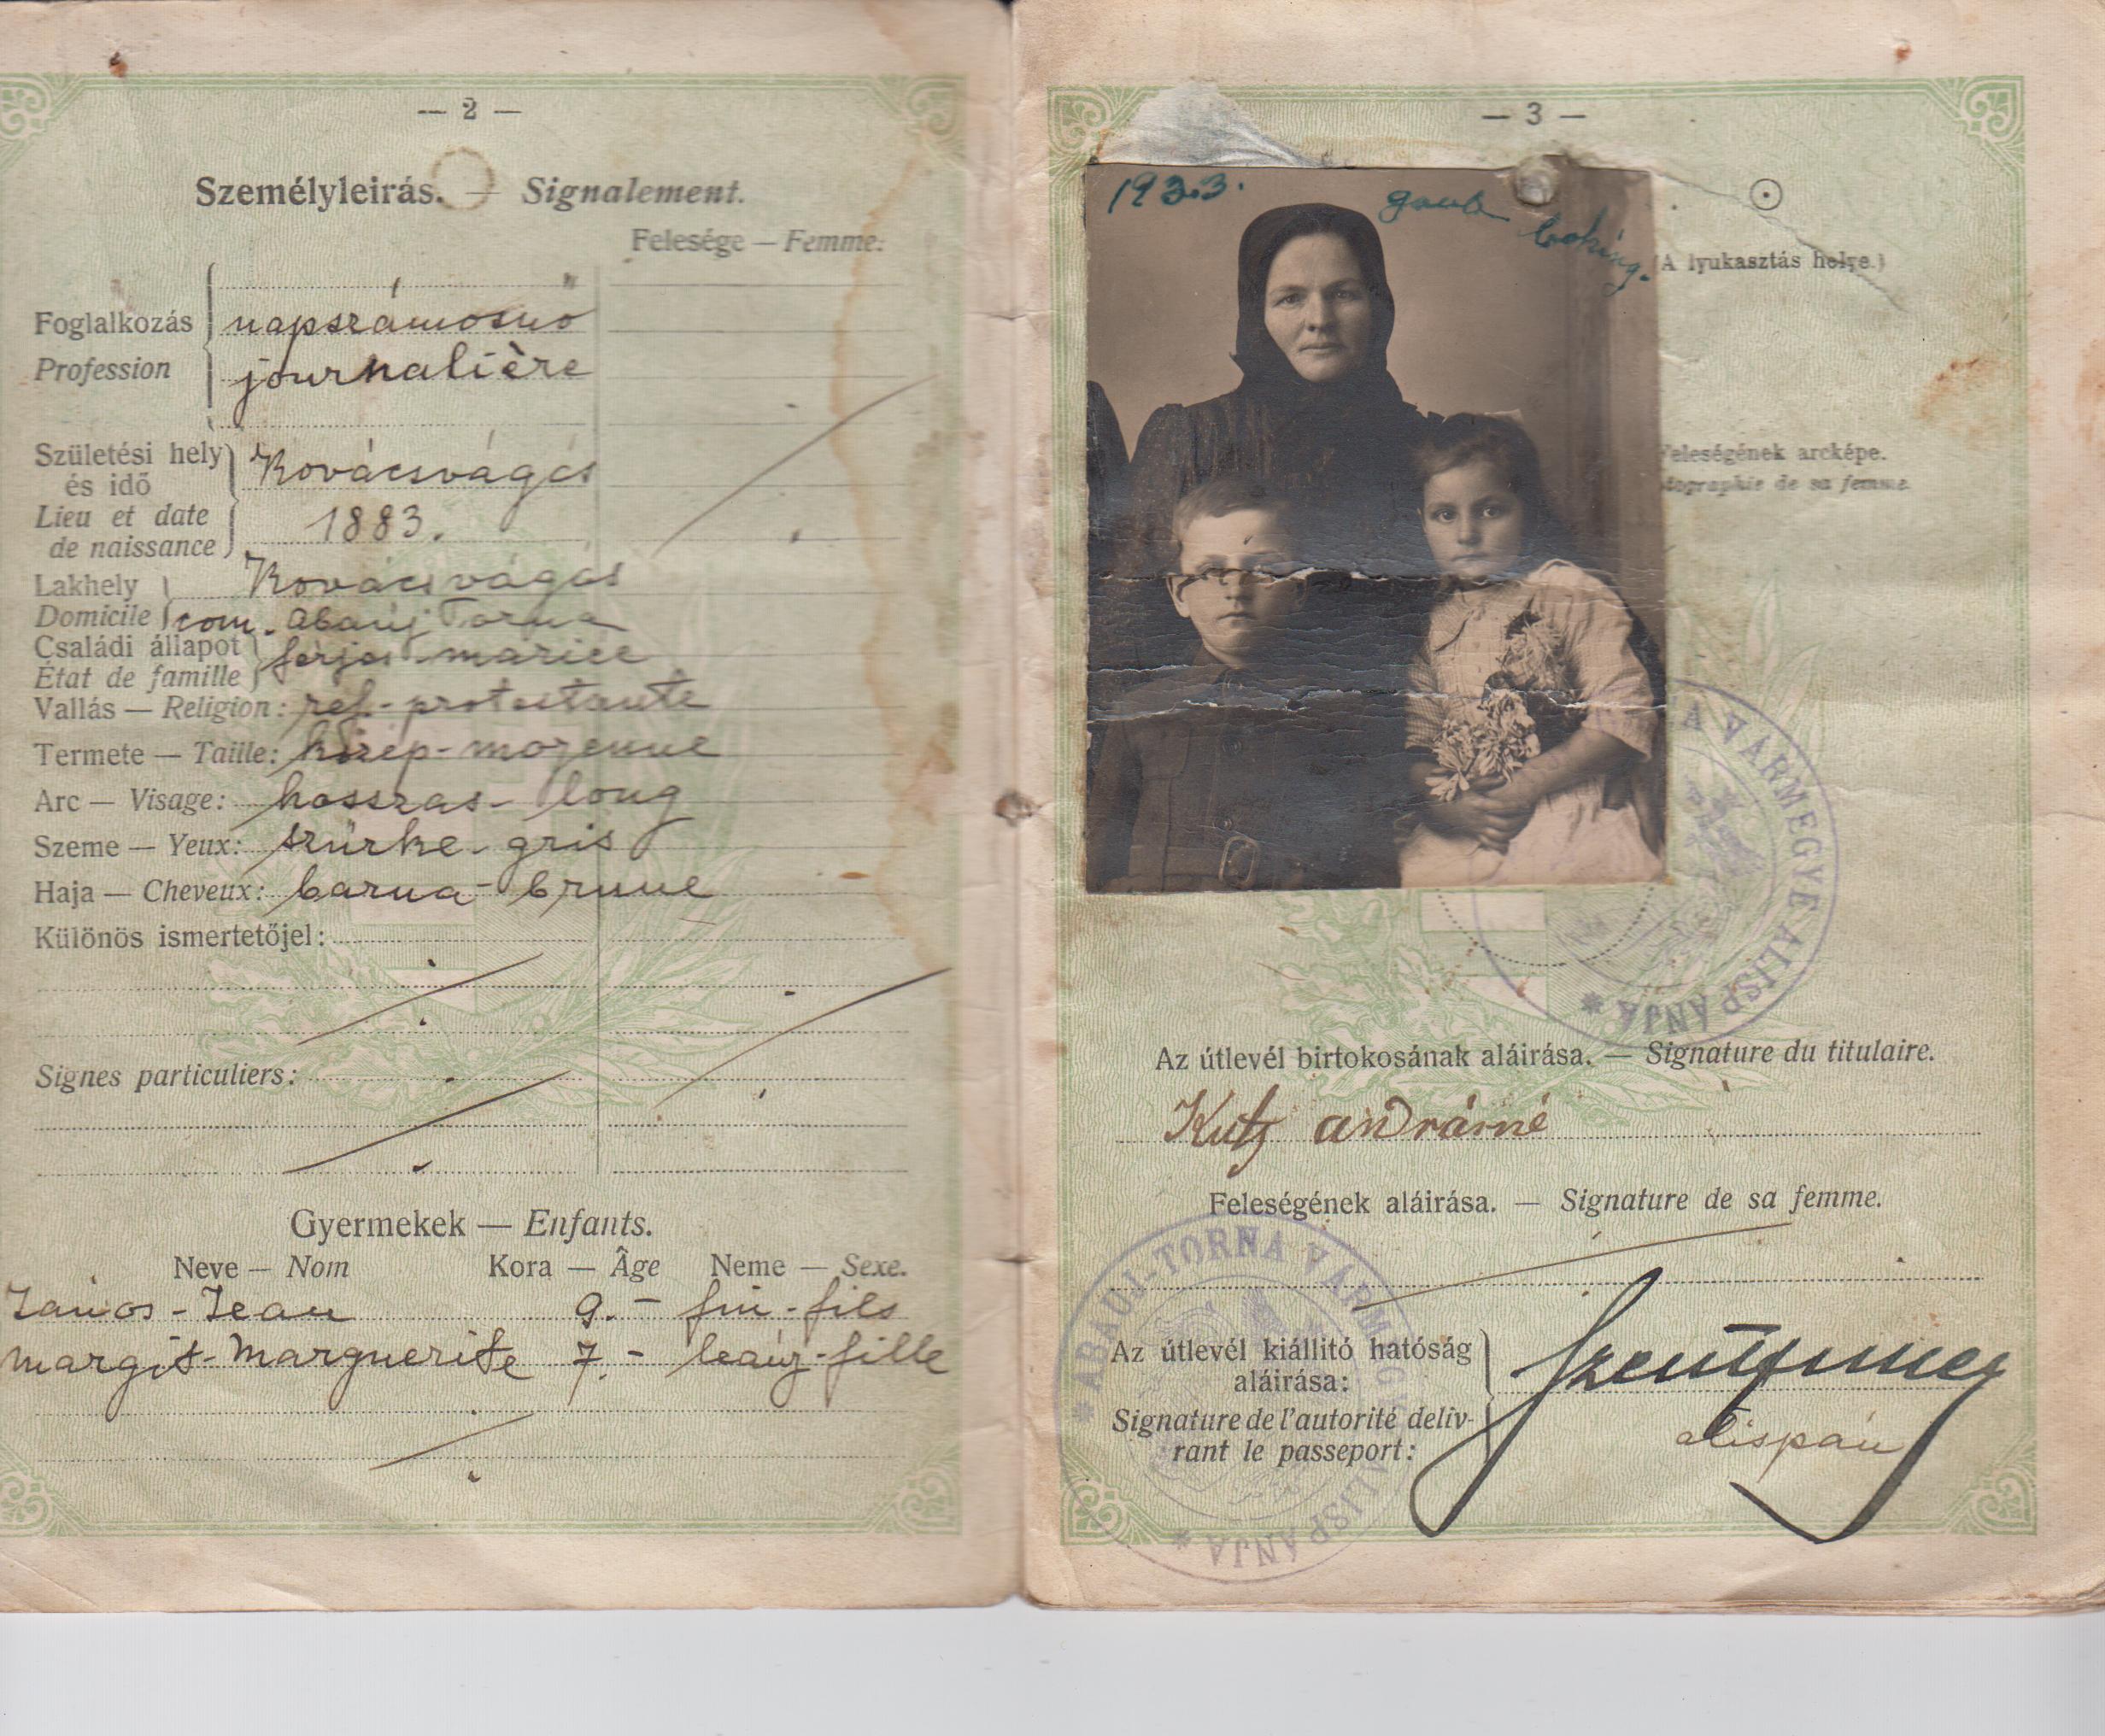 — 2 —
Személyleirás. — Signalement.
Felesége — Femme:
Foglalkozás napszámosnő
Profession journalière
Születési hely és idő Kovácsvágás
Lieu et date de naissance 1883.
Lakhely Kovácsvágás
Domicile com. Abaúj Torna
Családi állapot
État de famille férjes mariée
Vallás — Religion: ref.-protestante
Termete — Taille: közép-moyenne
Arc — Visage: hosszas-long
Szeme — Yeux: szürke-gris
Haja — Cheveux: barna-brune
Különös ismertetőjel:
Signes particuliers:
Gyermekek — Enfants.
Neve — Nom Kora — Âge Neme — Sexe.
János-Jean 9.- fiú-fils
Margit-Marguerite 7.- leány-fille
— 3 —
1933.
(A lyukasztás helye.)
Feleségének arcképe.
de sa femme.
A VÁRMEGYE ALISPÁNJA *
Az útlevél birtokosának aláirása. — Signature du titulaire.
Kutz andrásné
Feleségének aláirása. — Signature de sa femme.
* ABAUJ-TORNA VÁRMEGYE ALISPÁNJA *
Az útlevél kiállitó hatóság
aláirása:
Signature de l'autorité deliv-
rant le passeport:
alispán